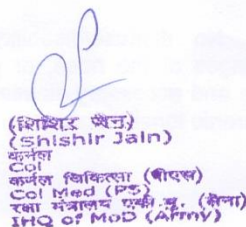 (शिशिर जैन)
(Shishir Jain)
कर्नल
Col
कर्नल चिकित्सा (पीएस)
Col Med (PS)
रक्षा मंत्रालय एकी. मु. (सेना)
IHQ of MoD (Army)